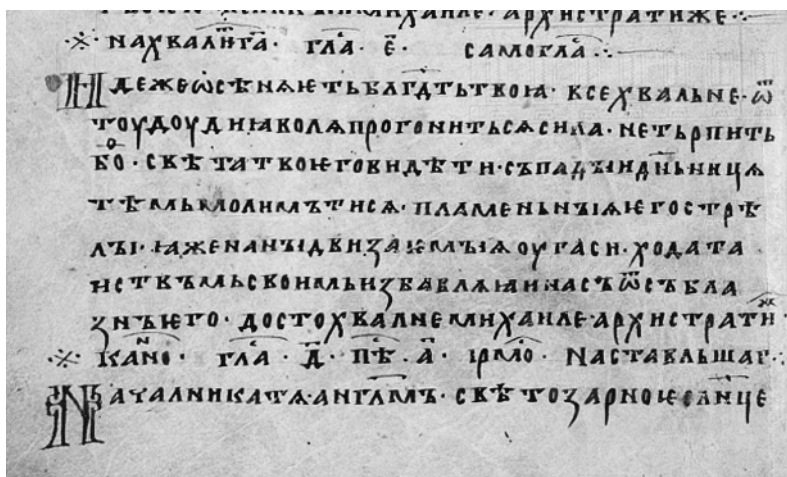 михаиле · архистратиже ·:·
·※· нахвалн҃га · гла҃ · е҃ · самогла҃ ·:·
Идежеѡсѣняѥтьблг҃дтьтвоꙗ · всехвальне · ѿ
тоудоудиꙗволѧпрогонитьсѧсила · нетьрпить
бо · свѣтатвоѥговидѣти · съпадъıидн҃ьницѧ
тѣмьмолимътисѧ · пламеньнъıѩѥгострѣ
лъı · ꙗженанъıдвизаѥмъıѧоугаси · ходата
иствъмьскоимьизбавлѧꙗинасъѿсъбла
знъѥго · достохвалнемихаиле · архистрати ж
·※· кано н · гла҃ · д҃ · пѣ с · а҃ · ірмо҃ · наставльшаг ·:·
Начальникатѧ · англ҃мъ · свѣтозарноѥслн҃це